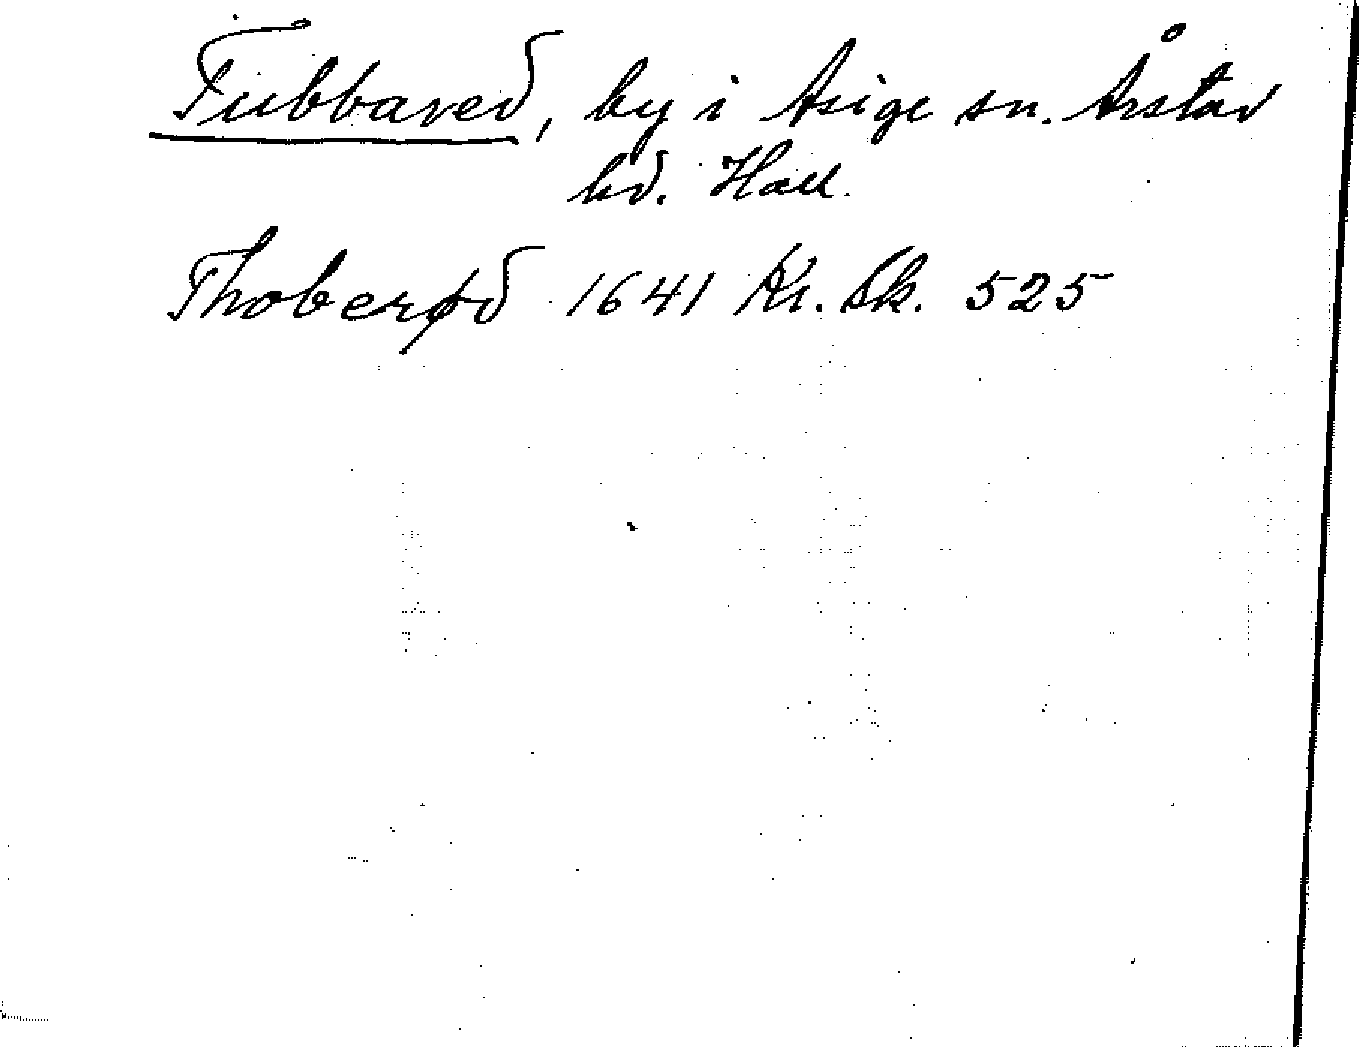 Tubbared, by i Asige sn. Årstad
hd. Hall.
Thoberød 1641 Kr. Sk. 525